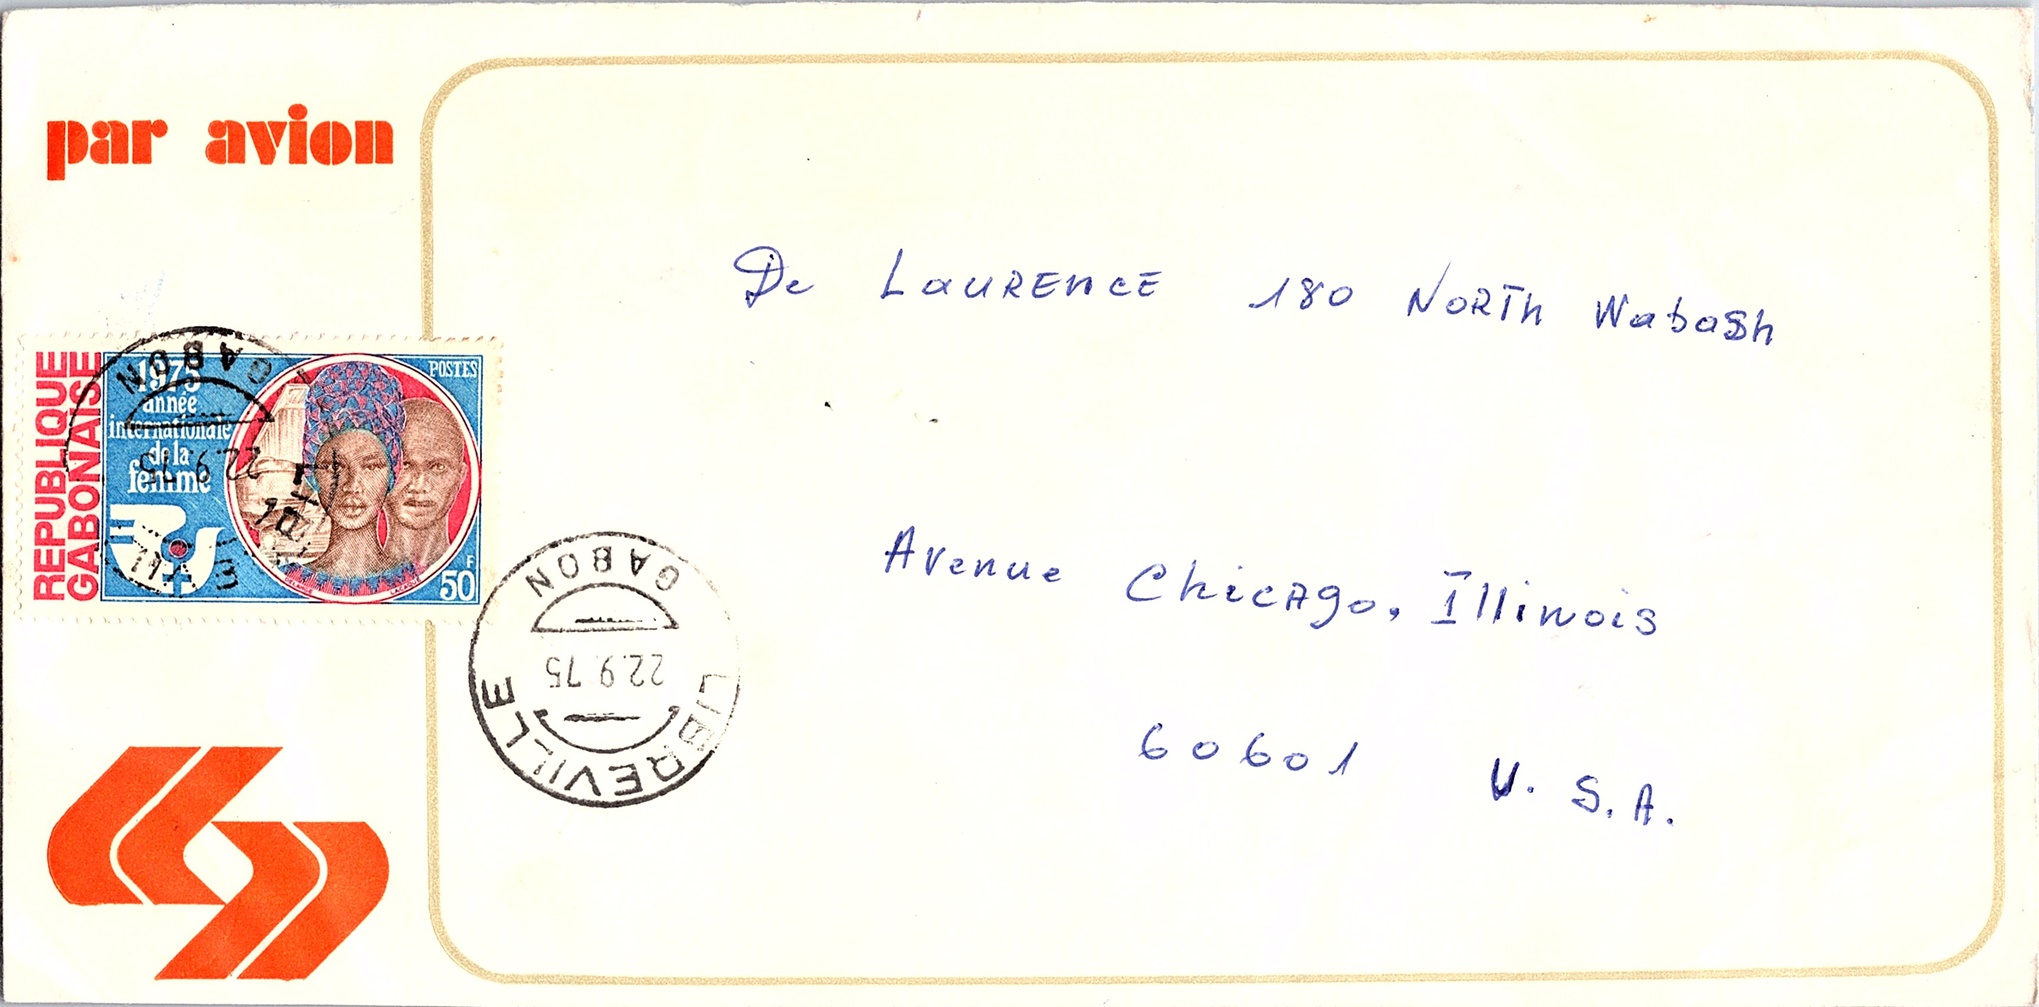 par avion
De LAURENCE 180 NORTH Wabash
Avenue Chicago, Illinois
60601 U.S.A.
REPUBLIQUE
GABONAISE
1975
année
internationale
de la
femme
POSTES
50F
GABON
22.9.75
LIBREVILLE
GABON
22.9.75